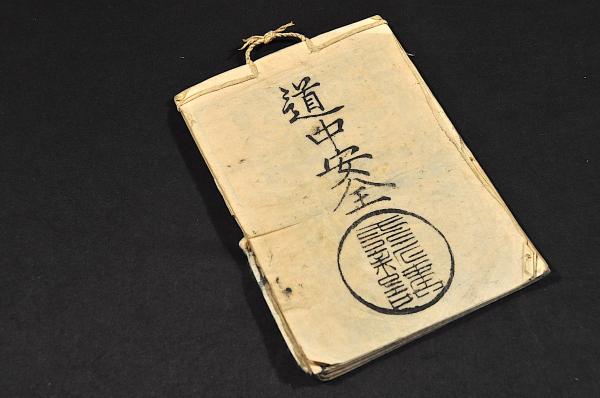 道中安全